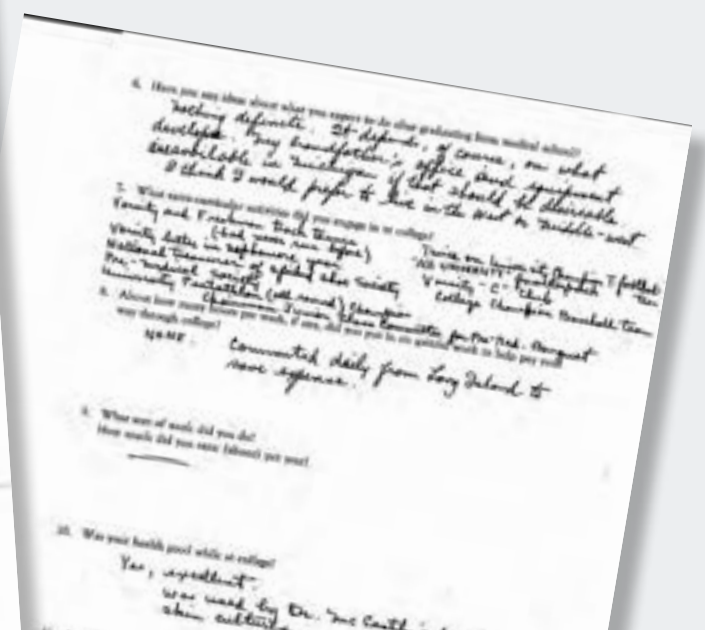 6. Have you any ideas about what you expect to do after graduating from medical school?
Nothing definite. It depends, of course, on what
develops. My grandfather's office and equipment
is available in Michigan if that should be desirable.
I think I would prefer to live in the West or Middle-west
7. What extra-curricular activities did you engage in at college?
Varsity and Freshman Track Teams
(had never run before)
Varsity letter in sophomore year
National Treasurer of Society
Pre-medical Society
University Pentathlon (all-round) Champion
Chairman Junior Class Committee for Pre-Med. Banquet
Twice on University Touch football
Varsity - "C" - Club
College Champion Baseball team
8. About how many hours per week, if any, did you put in on outside work to help pay your
way through college?
NONE.
Commuted daily from Long Island to
save expense.
9. What sort of work did you do?
How much did you earn (about) per year?
10. Was your health good while at college?
Yes, excellent.
was used by Dr. Mc
skin